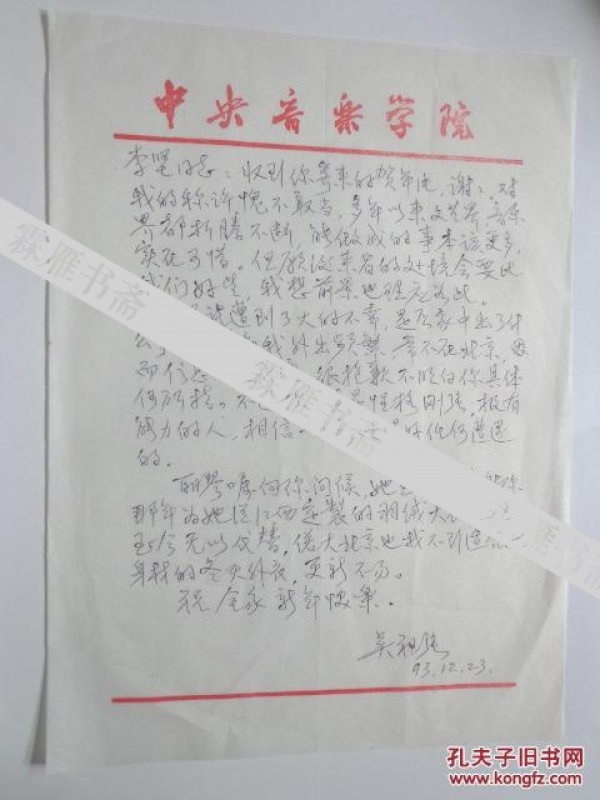 中央音乐学院
李坚同志：收到你寄来的贺年片，谢谢。对
我的称许愧不敢当，多年以来文艺界、音乐
界都折腾不断，能做成的事本该更多，
实在可惜。但愿后来者的处境会要比
我们好些，我想前景也理应如此。
说遭到了大的不幸，是否家中出了什
么 我外出频繁，常不在北京，
很抱歉不晓得你具体
何所指。不 是性格刚强，极有
能力的人，相信
的。
嘱向你问候，她
那年为她从江西定製的羽绒大
至今无以代替，偌大北京也找不到适
身材的冬天外衣，更新不易。
祝全家新年快乐。
吴祖强
93.12.23.
霖雁书斋
霖雁书斋
霖雁书斋
孔夫子旧书网
www.kongfz.com